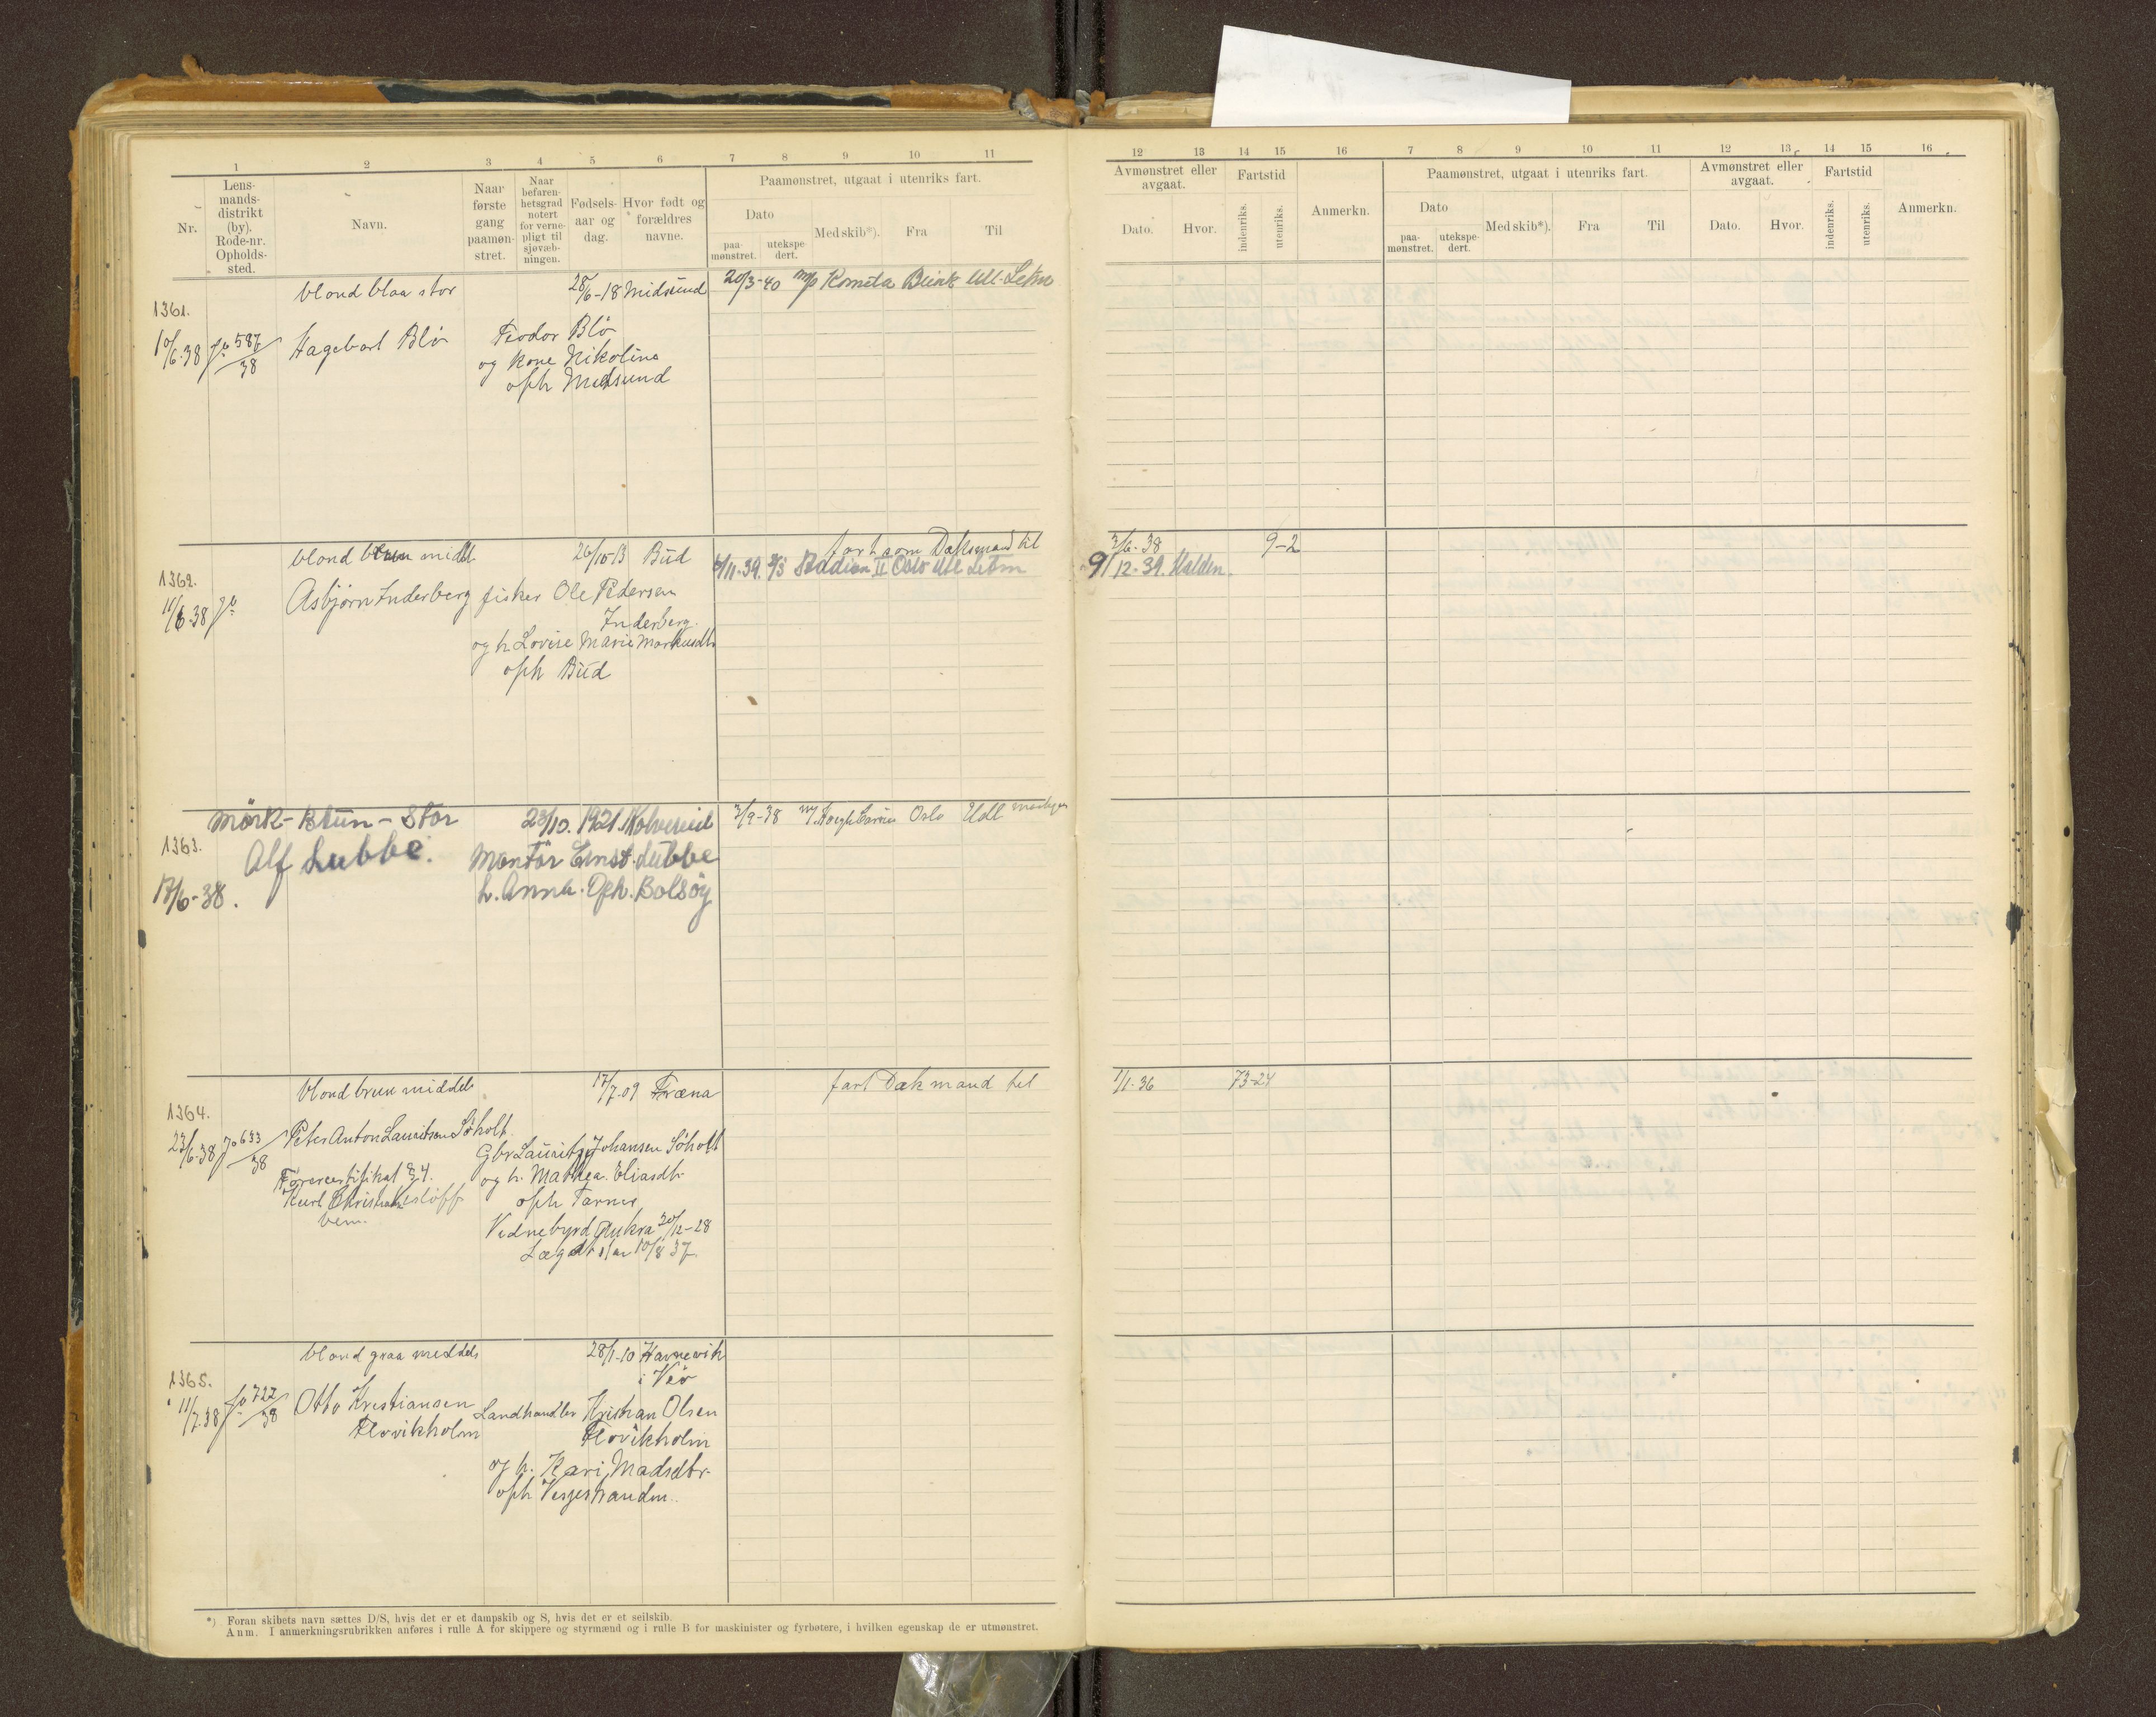 1 2 3 4 5 6 7 8 9 10 11
Nr.
Lens-
mands-
distrikt
(by).
Rode-nr.
Opholds-
sted.
Navn.
Naar
første
gang
paamøn-
stret.
Naar
befaren-
hetsgrad
notert
for verne-
pligt til
sjøvæb-
ningen.
Fødsels-
aar og
dag.
Hvor født og
forældres
navne.
Paamønstret, utgaat i utenriks fart.
Dato
paa-
mønstret.
utekspe-
dert.
Med skib*).
Fra
Til
1361.
10/6.38 Jo 587/38
blond blaa stor
Hagebart Blö
28/6-18 Midsund
Teodor Blö
og kone Nikoline
oph Midsund
20/3-40 m/s Kometa Utl. Letm
1362.
11/6.38 Jo
blond brun midd.
Asbjörn Inderberg
26/10-13 Bud
fisker Ole Pedersen
Inderberg.
og h. Lovise Marie Markusdtr
oph Bud
fart som Daksmand til
6/11-39. D/S Stadion II Oslo Utl Letm
1363.
17/6-38.
Mörk-Brun-Stor
Alf Lubbe.
23/10. 1921. Kolvereid
Montör Ernst. Lubbe
h. Anna. Oph. Bolsöy
2/9-38 Oslo Utl
1364.
23/6.38 Jo 633/38
blond brun middels
Peter Anton Lauritsen Söholt.
Förercertifikat § 4.
17/7.09 Fræna
Gbr Lauritz Johansen Söholt
og h. Mathea Eliasdtr
oph Tornes
Vidnebyrd Aukra 30/12-28
10/8 37
fart Dækmand til
1365.
11/7.38 Jo 727/38
blond graa middels
Otto Kristiansen
Flovikholm
28/1-10 Havnevik
i Veö
Landhandler Kristian Olsen
Flovikholm
og h. Kari Madsdtr.
oph Vestjestranden.
*) Foran skibets navn sættes D/S, hvis det er et dampskib og S, hvis det er et seilskib.
Anm. I anmerkningsrubrikken anføres i rulle A for skippere og styrmænd og i rulle B for maskinister og fyrbøtere, i hvilken egenskap de er utmønstret.
12 13 14 15 16 7 8 9 10 11 12 13 14 15 16
Avmønstret eller
avgaat.
Dato.
Hvor.
Fartstid
indenriks.
utenriks.
Anmerkn.
Paamønstret, utgaat i utenriks fart.
Dato
paa-
mønstret.
utekspe-
dert.
Med skib*).
Fra
Til
Avmønstret eller
avgaat.
Dato.
Hvor.
Fartstid
indenriks.
utenriks.
Anmerkn.
2/6-38 9-2
9/12-39. Halden.
1/1-36 73-24